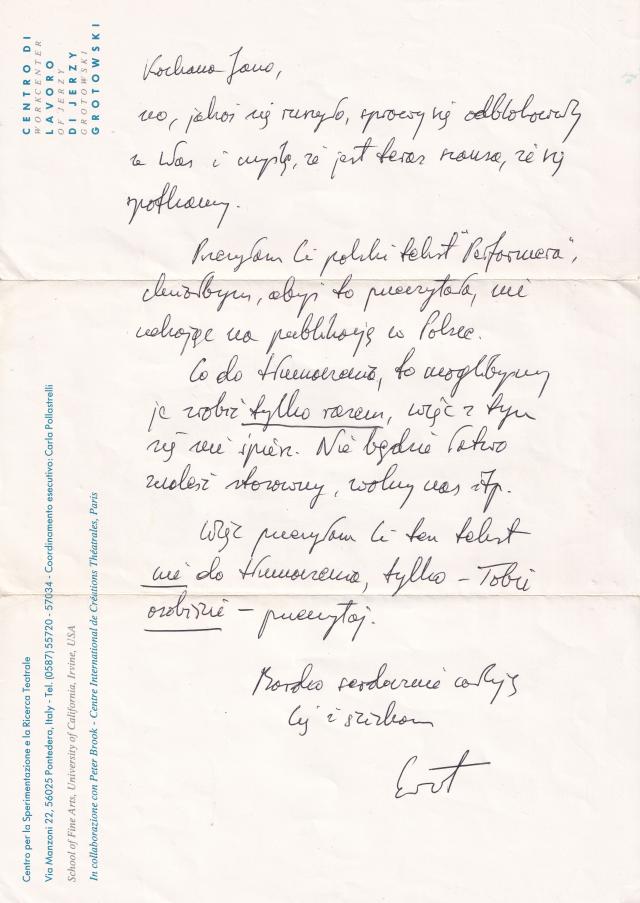 CENTRO DI
WORKCENTER
LAVORO
OF JERZY
DI JERZY
GROTOWSKI
GROTOWSKI
Kochana Jano,
no, jakoś się ruszyło, sprawy się odblokowały
u Was i myślę, że jest teraz szansa, że się
spotkamy.
Przesyłam Ci polski tekst "Performera",
chciałbym, abyś to przeczytała, nie
nalegając na publikację w Polsce.
Co do tłumaczenia, to moglibyśmy
je zrobić tylko razem, więc z tym
się nie śpiesz. Nie będzie łatwo
znaleźć stosowny, wolny czas itp.
Więc przesyłam Ci ten tekst
nie do tłumaczenia, tylko – Tobie
osobiście – przeczytaj.
Bardzo serdecznie całuję
Cię i ściskam
Centro per la Sperimentazione e la Ricerca Teatrale
Via Manzoni 22, 56025 Pontedera, Italy - Tel. (0587) 55720 - 57034 - Coordinamento esecutivo: Carla Pollastrelli
School of Fine Arts, University of California, Irvine, USA
In collaborazione con Peter Brook - Centre International de Créations Théatrales, Paris